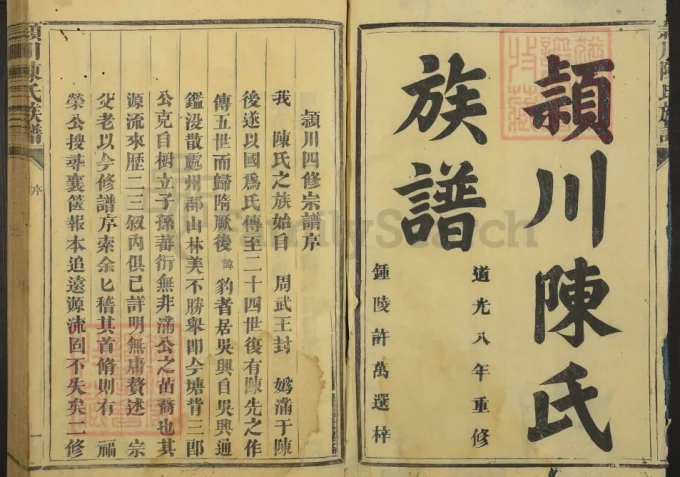 潁川陳氏
族譜
道光八年重修
鍾陵許萬選梓
潁川四修宗譜序
我 陳氏之族始自 周武王封 媯滿于陳
後遂以國爲氏傳至二十四世復有陳先之作
傳五世而歸隋厥後 諱 豹者居吳興自吳興通
鑑没散處州郡山林美不勝舉即今塘背三郎
公克自樹立子孫蕃衍無非滿公之苗裔也其
源流來歷一二三叙内俱己詳明無庸贅述 宗
父老以今修譜序索余匕稽其首脩則有 福
榮公搜尋襄篋報本追遠源流固不失矣二修
潁川陳氏族譜
序
一
FamilySearch